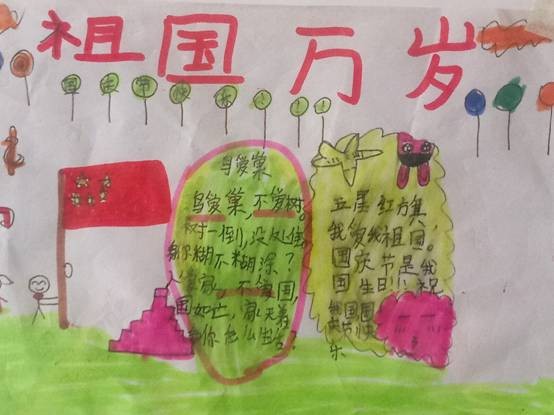 祖国万岁
国庆节快乐!!!
鸟爱巢
鸟爱巢,不爱树。
树一倒,没处住,
看你糊不糊涂?
家,不爱国,
国如亡,家无
你怎么生活?
五星红旗
我爱我祖国!
国庆节是我
国生日!祝
我国国
庆节快
乐